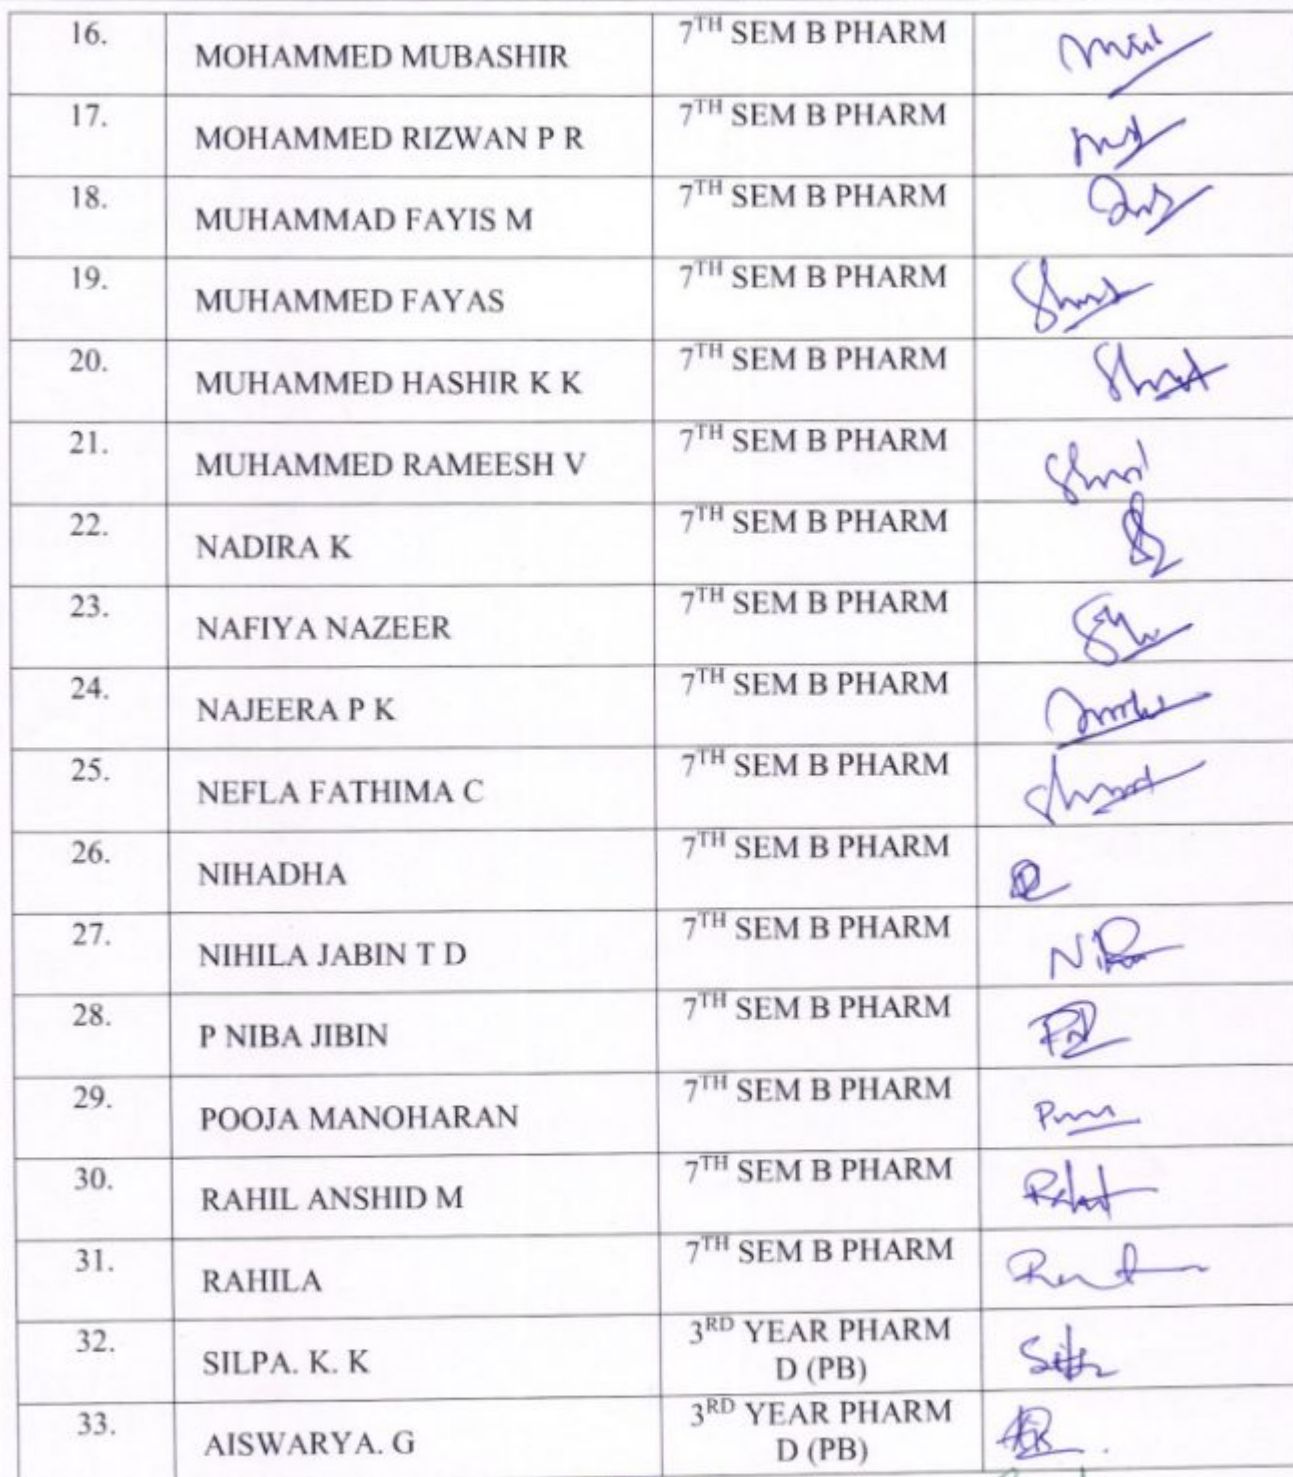 16. MOHAMMED MUBASHIR 7TH SEM B PHARM
17. MOHAMMED RIZWAN P R 7TH SEM B PHARM
18. MUHAMMAD FAYIS M 7TH SEM B PHARM
19. MUHAMMED FAYAS 7TH SEM B PHARM
20. MUHAMMED HASHIR K K 7TH SEM B PHARM
21. MUHAMMED RAMEESH V 7TH SEM B PHARM
22. NADIRA K 7TH SEM B PHARM
23. NAFIYA NAZEER 7TH SEM B PHARM
24. NAJEERA P K 7TH SEM B PHARM
25. NEFLA FATHIMA C 7TH SEM B PHARM
26. NIHADHA 7TH SEM B PHARM
27. NIHILA JABIN T D 7TH SEM B PHARM
28. P NIBA JIBIN 7TH SEM B PHARM
29. POOJA MANOHARAN 7TH SEM B PHARM
30. RAHIL ANSHID M 7TH SEM B PHARM
31. RAHILA 7TH SEM B PHARM
32. SILPA. K. K 3RD YEAR PHARM
D (PB)
33. AISWARYA. G 3RD YEAR PHARM
D (PB)